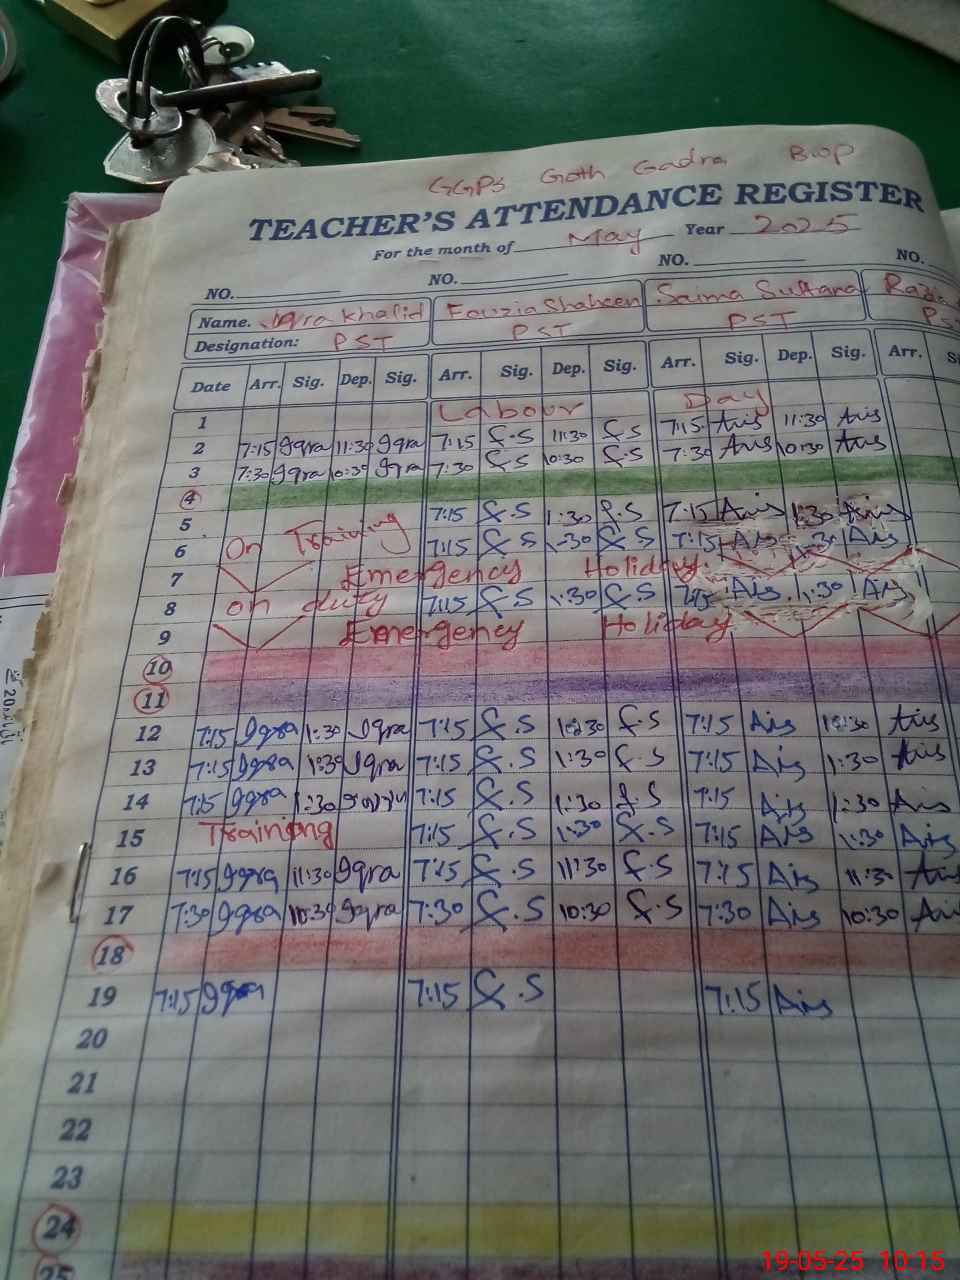 GGPS Goth Gadra BWP
TEACHER'S ATTENDANCE REGISTER
For the month of May Year 2025
NO. NO. NO. NO.
Name. Iqra Khalid Fouzia Shaheen Saima Sultana
Designation: PST PST PST
Date Arr. Sig. Dep. Sig. Arr. Sig. Dep. Sig. Arr. Sig. Dep. Sig. Arr.
1 Labour Day
2 7:15 Iqra 11:30 Iqra 7:15 F.S 11:30 F.S 7:15 11:30
3 7:30 Iqra 10:30 Iqra 7:30 F.S 10:30 F.S 7:30 10:30
4
5 7:15 F.S 1:30 F.S 7:15 1:30
6 On Training 7:15 F.S 1:30 F.S 7:15 1:30
7 Emergency Holiday.
8 on duty 7:15 F.S 1:30 F.S 7:15 1:30
9 Emergency Holiday
10
11
12 7:15 Iqra 1:30 Iqra 7:15 F.S F.S 7:15
13 7:15 Iqra 1:30 Iqra 7:15 F.S 1:30 F.S 7:15 1:30
14 7:15 Iqra 1:30 7:15 F.S 1:30 F.S 7:15 1:30
15 Training 7:15 F.S 1:30 F.S 7:15 1:30
16 7:15 Iqra 11:30 Iqra 7:15 F.S 11:30 F.S 7:15 11:30
17 7:30 Iqra 10:30 Iqra 7:30 F.S 10:30 F.S 7:30 10:30
18
19 7:15 Iqra 7:15 F.S 7:15
20
21
22
23
24
25
19-05-25 10:15